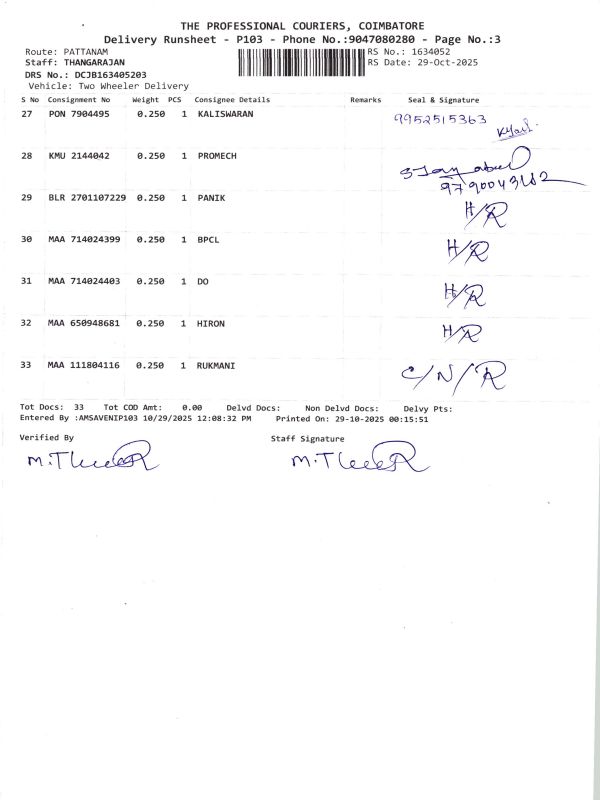 THE PROFESSIONAL COURIERS, COIMBATORE
Delivery Runsheet - P103 - Phone No.:9047080280 - Page No.:3
Route: PATTANAM RS No.: 1634052
Staff: THANGARAJAN RS Date: 29-Oct-2025
DRS No.: DCJB163405203
Vehicle: Two Wheeler Delivery
S No Consignment No Weight PCS Consignee Details Remarks Seal & Signature
27 PON 7904495 0.250 1 KALISWARAN 9952515363
28 KMU 2144042 0.250 1 PROMECH
29 BLR 2701107229 0.250 1 PANIK H/R
30 MAA 714024399 0.250 1 BPCL H/R
31 MAA 714024403 0.250 1 DO H/R
32 MAA 650948681 0.250 1 HIRON H/R
33 MAA 111804116 0.250 1 RUKMANI C/N/R
Tot Docs: 33 Tot COD Amt: 0.00 Delvd Docs: Non Delvd Docs: Delvy Pts:
Entered By :AMSAVENIP103 10/29/2025 12:08:32 PM Printed On: 29-10-2025 00:15:51
Verified By Staff Signature